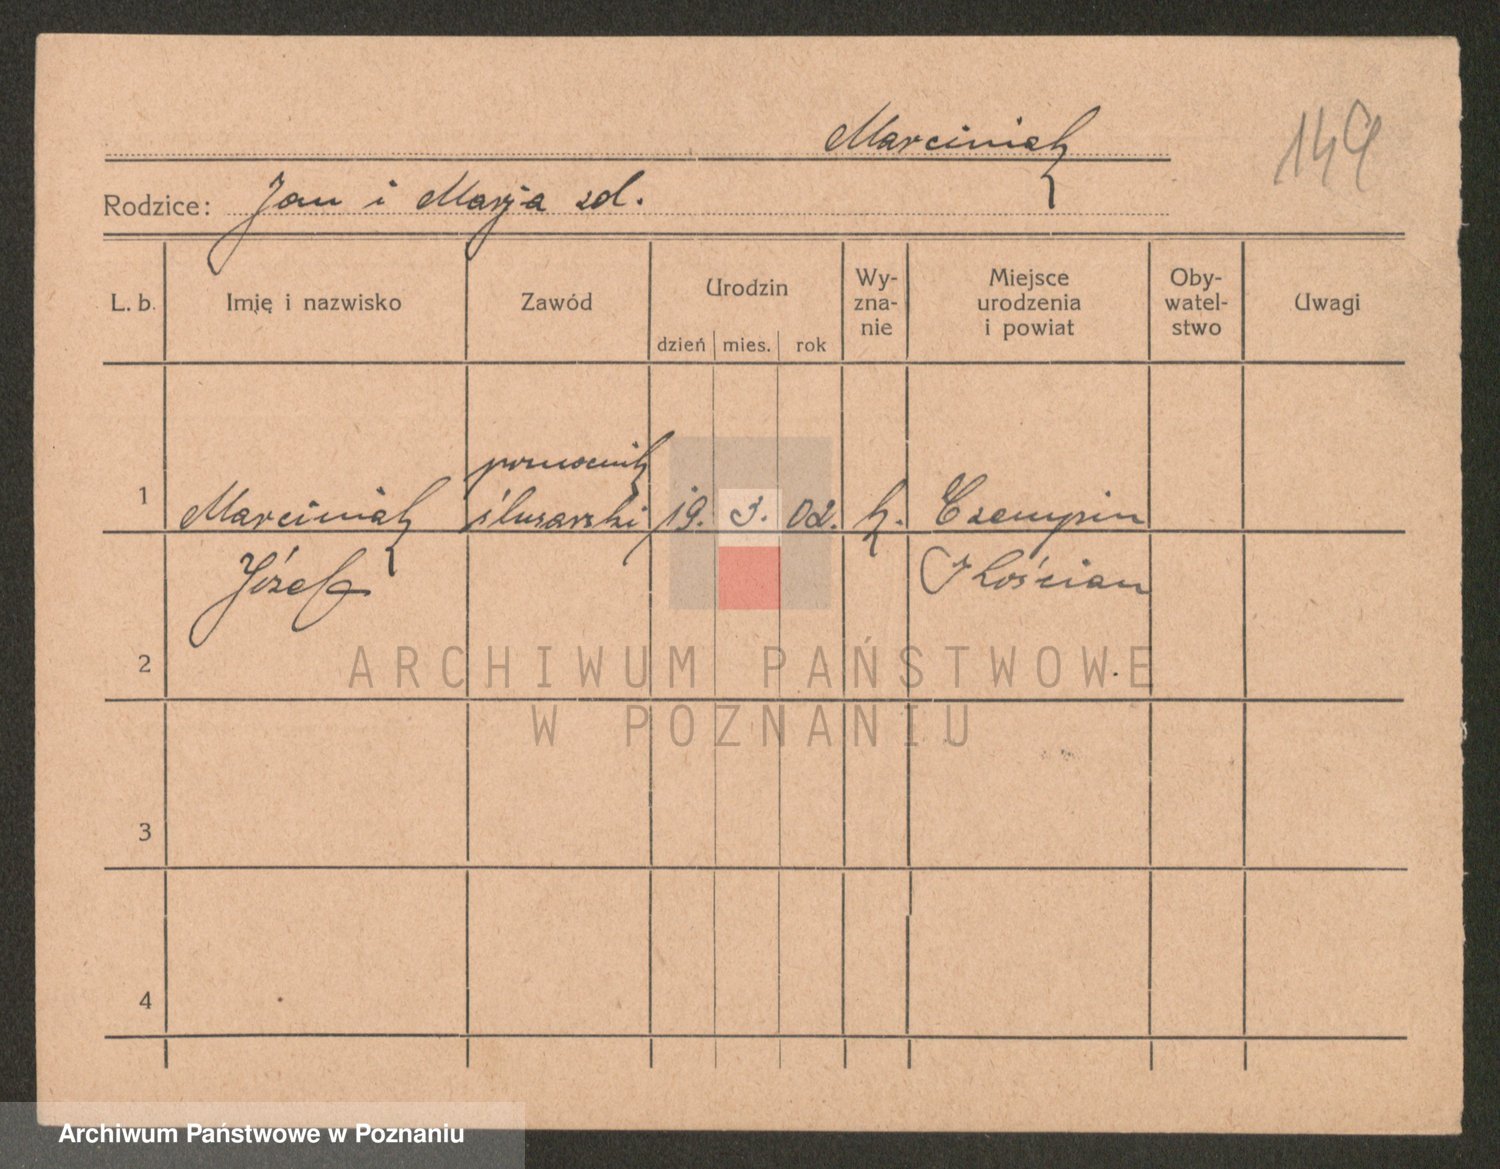 Marciniak
144
Rodzice: Jan i Marja zd.
L. b. Imię i nazwisko Zawód Urodzin Wy- zna- nie Miejsce urodzenia i powiat Oby- watel- stwo Uwagi
dzień mies. rok
pomocnik
1 Marciniak ślusarski 19. 3. 02. k. Czempin
Józef Kościan
2
ARCHIWUM PAŃSTWOWE
W POZNANIU
3
4
Archiwum Państwowe w Poznaniu